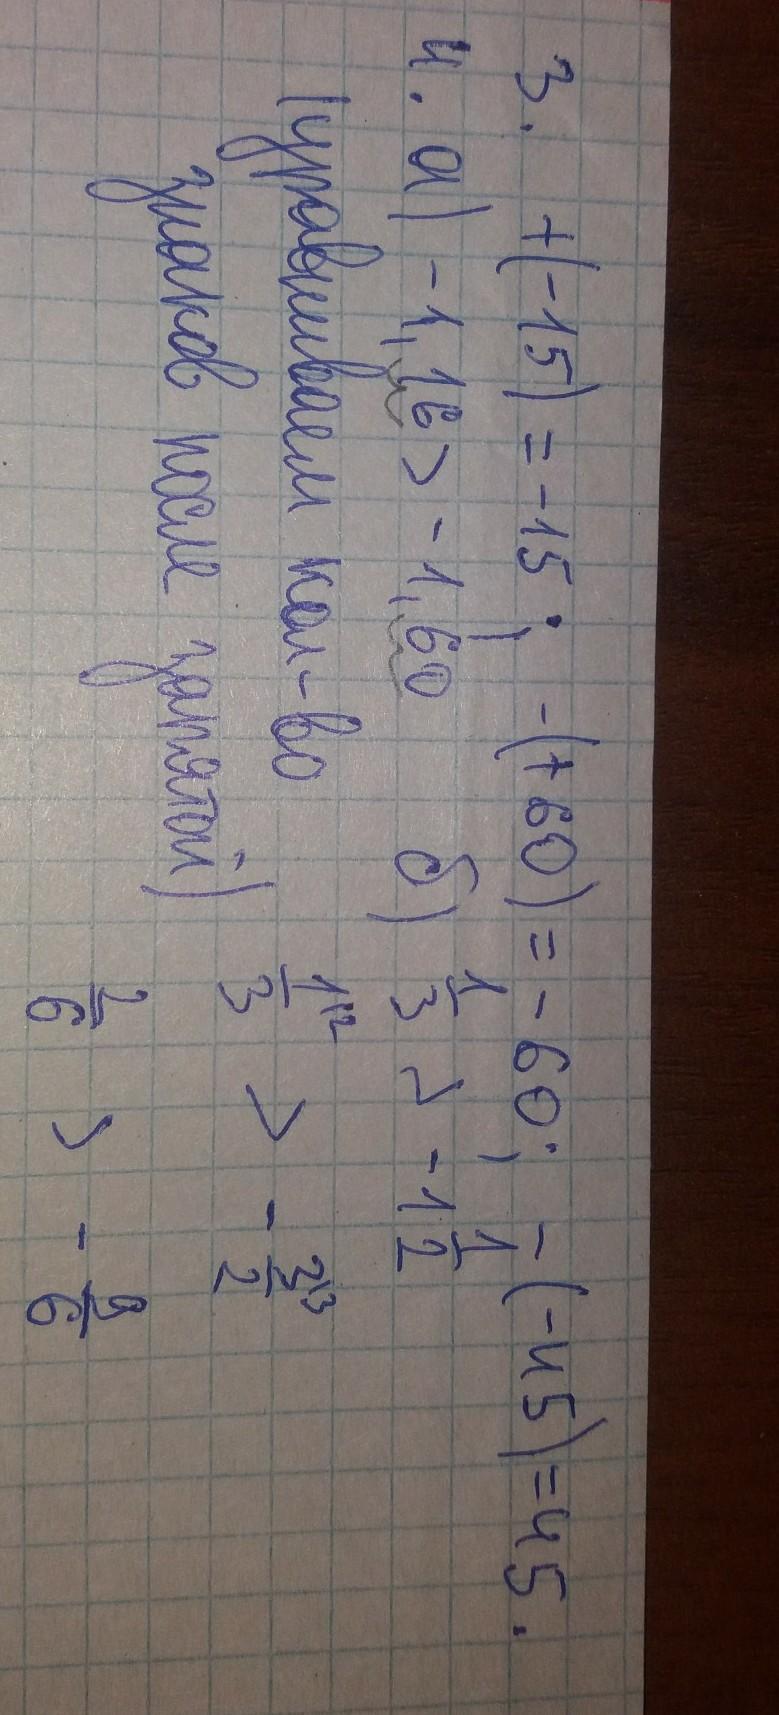 3. +(-15) = -15; -(+60) = -60; -(-45) = 45.
4. а) -1,16 > -1,60 б) 1/3 > -1 1/2
(уравниваем кол-во 1\2/3 > - 3\3/2
знаков после запятой) 2/6 > - 9/6